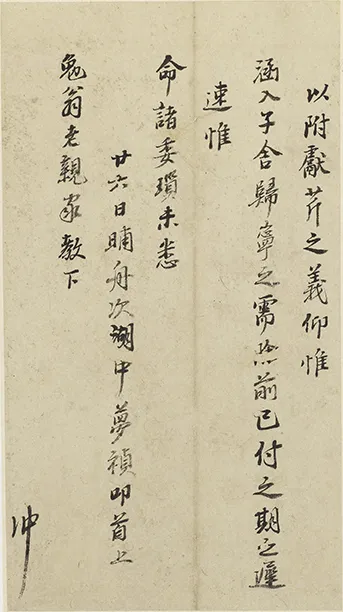 以附獻芹之義仰惟
涵入子舍歸寧之需點前已付之期之遲
速惟
命諸委瑣未悉
廿六日晡舟次湖中夢禎叩首上
兔翁老親家教下
冲